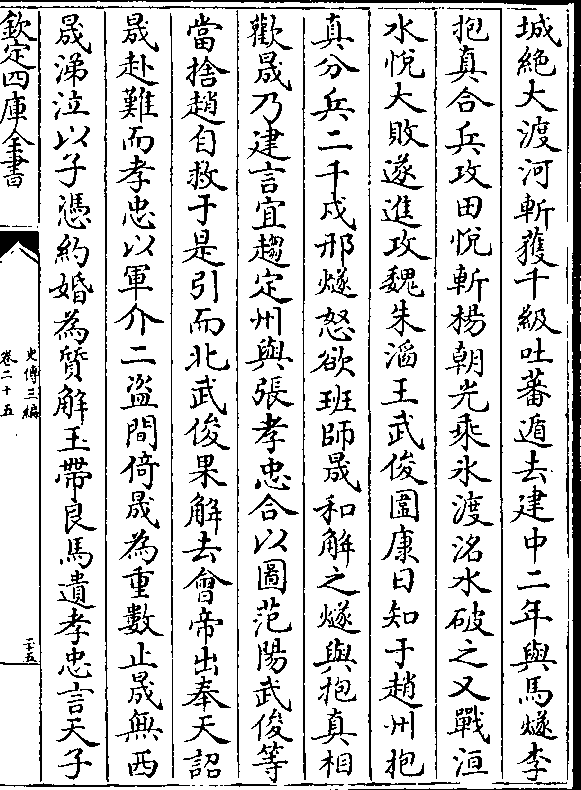 城絶大渡河斬獲千級吐蕃遁去建中二年與馬燧李
抱真合兵攻田悅斬楊朝光乘氷渡洺水破之又戰洹
水悅大敗遂進攻魏朱滔王武俊圍康日知于趙州抱
真分兵二千戍邢燧怒欲班師晟和解之燧與抱真相
歡晟乃建言宜趨定州與張孝忠合以圖范陽武俊等
當捨趙自救于是引而北武俊果解去會帝出奉天詔
晟赴難而孝忠以軍介二盗間倚晟為重數止晟無西
晟涕泣以子憑約婚為質解玉帶良馬遺孝忠言天子
欽定四庫全書
史傳三編
卷二十五
二十五